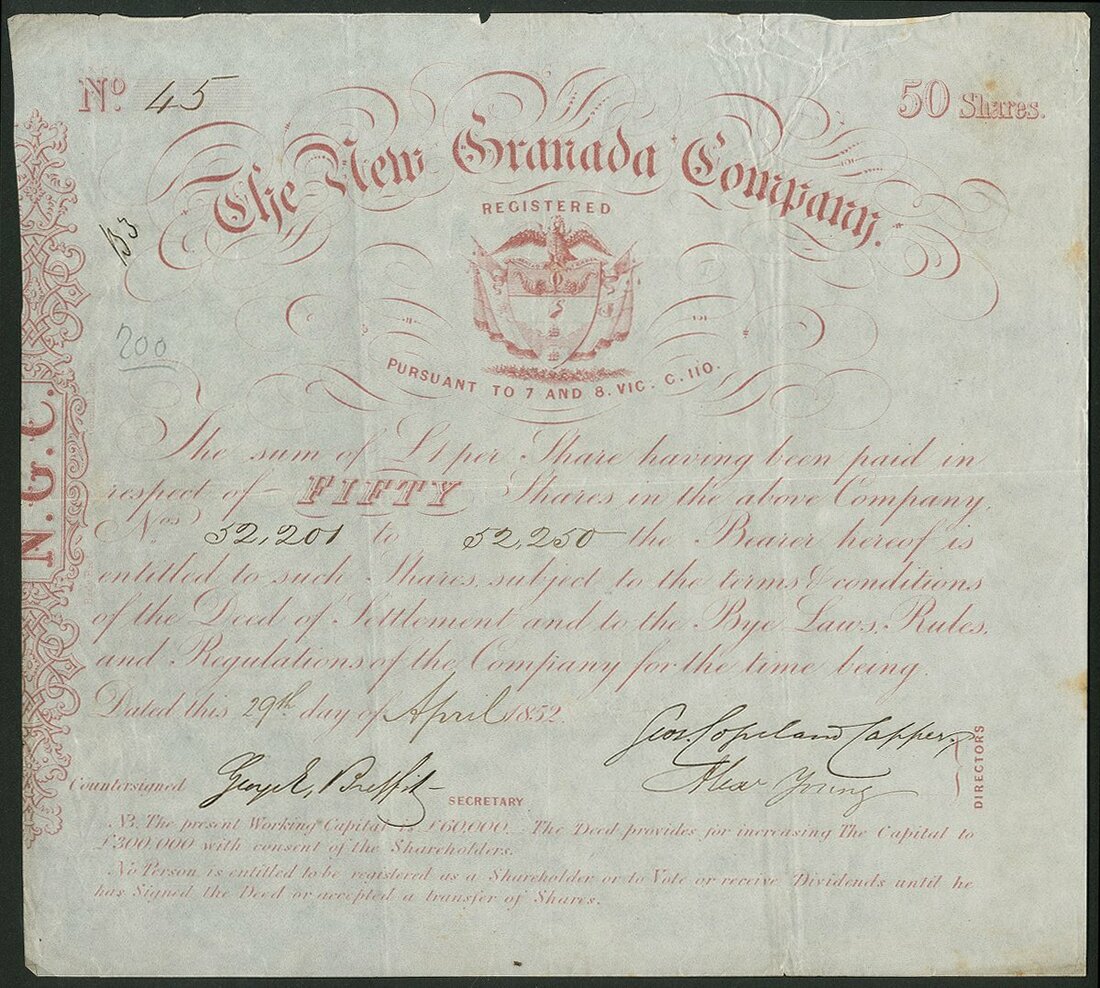 No. 45
50 Shares.
The New Granada Company.
REGISTERED
153
200
PURSUANT TO 7 AND 8. VIC. C. 110.
N. G. C.
The sum of £1 per Share having been paid in
respect of FIFTY Shares in the above Company,
Nos. 52,201 to 52,250 the Bearer hereof is
entitled to such Shares, subject to the terms & conditions
of the Deed of Settlement and to the Bye Laws, Rules,
and Regulations of the Company for the time being.
Dated this 29th day of April 1852.
Geo. Copeland Capper,
Alexr Young
DIRECTORS
Countersigned George E, Breffit
SECRETARY
NB. The present Working Capital is £60,000. The Deed provides for increasing The Capital to
£300,000 with consent of the Shareholders.
No Person is entitled to be registered as a Shareholder or to Vote or receive Dividends until he
has Signed the Deed or accepted a transfer of Shares.